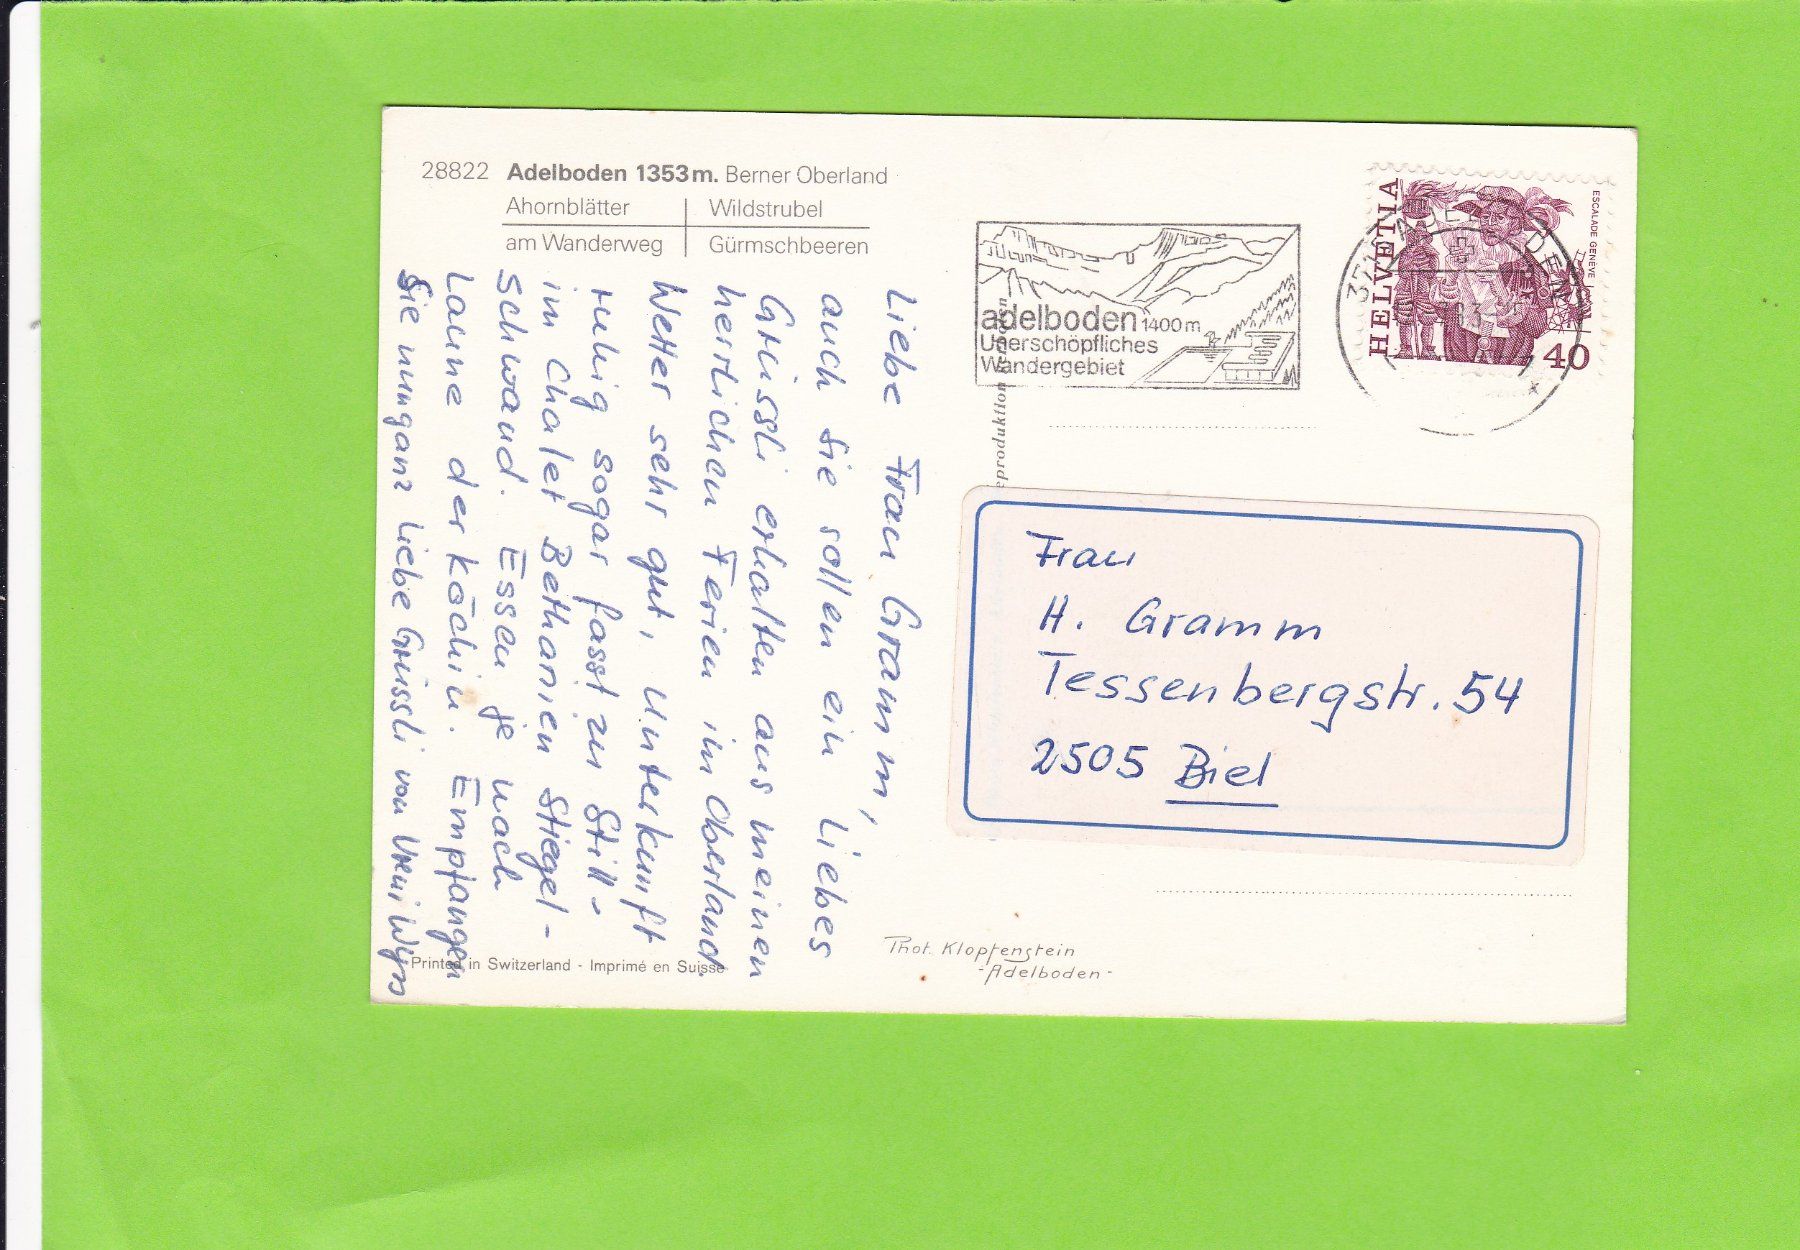 28822 Adelboden 1353 m. Berner Oberland
Ahornblätter
Wildstrubel
am Wanderweg
Gürmschbeeren
adelboden 1400 m
Unerschöpfliches
Wandergebiet
HELVETIA
ESCALADE GENEVE
40
Liebe Frau Gramm,
auch Sie sollen ein Liebes
Grüssli erhalten aus meinen
herrlichen Ferien im Oberland.
Wetter sehr gut, Unterkunft
ruhig sogar fasst zu Still-
im Chalet Bethanien Stiegel-
schwand. Essen je nach
Laune der Köchin. Empfangen
Sie nun ganz Liebe Grüssli von Vreni Wyss
Frau
H. Gramm
Tessenbergstr. 54
2505 Biel
Phot. Klopfenstein
-Adelboden-
Printed in Switzerland - Imprimé en Suisse